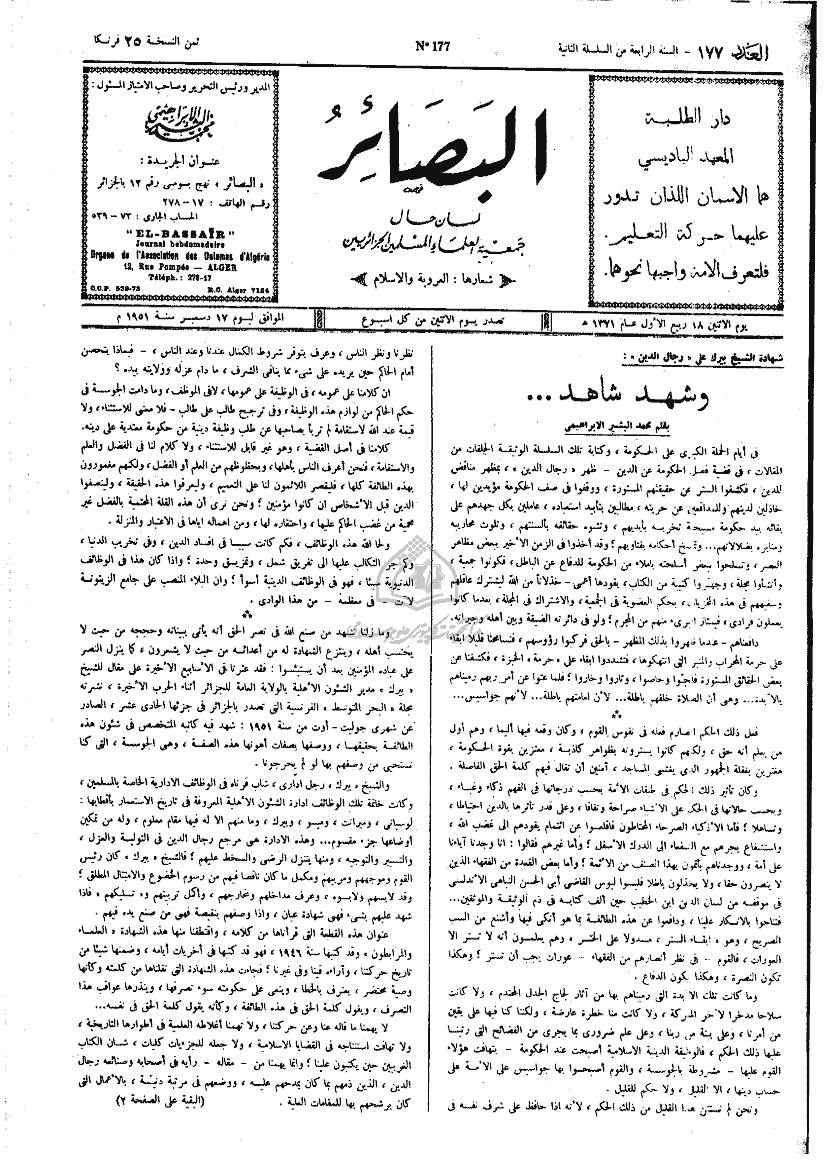 العدد ١٧٧ - السنة الرابعة من السلسلة الثانية
N° 177
ثمن النسخة ٢٥ فرنكا
دار الطلبة
المعهد الباديسي
هما الاسمان اللذان تدور
عليهما حركة التعليم.
فلتعرف الامة واجبها نحوهما.
البصائر
لسان حال
جمعية العلماء المسلمين الجزائريين
شعارها : العروبة والاسلام
المدير ورئيس التحرير وصاحب الامتياز المسئول :
محمد البشير الإبراهيمي
عنوان الجريدة :
« البصائر » نهج بومبي رقم ١٢ بالجزائر
رقم الهاتف : ١٧-٢٧٨
الحساب الجارى : ٧٣-٥٣٩
"EL-BASSAÏR"
Journal hebdomadaire
Organe de l'Association des Oulamas d'Algérie
12, Rue Pompée — ALGER
Téléph. : 278-17
C.C.P. 539-73 R.C. Alger 7124
يوم الاثنين ١٨ ربيع الأول عام ١٣٧١ ه
تصدر يوم الاثنين من كل اسبوع
الموافق ليوم ١٧ دسمبر سنة ١٩٥١ م
شهادة الشيخ بيرك على « رجال الدين » :
وشهد شاهد ...
بقلم محمد البشير الابراهيمي
فى أيام الحملة الكبرى على الحكومة ، وكتابة تلك السلسلة الوثيقة الحلقات من
المقالات ، فى قضية فصل الحكومة عن الدين - ظهر « رجال الدين » بمظهر مناقض
للدين ، فكشفوا الستر عن حقيقتهم المستورة ، ووقفوا فى صف الحكومة مؤيدين لها ،
خاذلين لدينهم وللمدافعين عن حريته ، مطالبين بتأييد استعباده ، عاملين بكل جهدهم على
بقائه بيد حكومة مسيحية تخربه بأيديهم ، وتشوه حقائقه بألسنتهم ، وتلوث محاريبه
ومنابره بضلالاتهم... وتمسخ أحكامه بفتاويهم ؛ وقد أخذوا فى الزمن الأخير ببعض مظاهر
العصر ، وتسلحوا ببعض أسلحته بإملاء من الحكومة للدفاع عن الباطل ، فكونوا جمعية ،
وأنشأوا مجلة ، وجهزوا كتيبة من الكتاب ، يقودها أعمى - خذلاناً من الله ليشترك عاقلهم
وسفيههم فى هذه المخزيات ، بحكم العضوية فى الجمعية ، والاشتراك فى المجلة ، بعدما كانوا
يعملون فرادى ، فيمتاز البرىء منهم من المجرم ؛ ولو فى دائرته الضيقة وبين أهله وجيرانه.
دافعناهم - عندما ظهروا بذلك المظهر - بالحق فركبوا رؤوسهم ، فتسامحنا قليلا ابقاء
على حرمة المحراب والمنبر التى انتهكوها ، فتشددوا ابقاء على « حرمة » الخبزة ، فكشفنا عن
بعض الحقائق المستورة فأجبنوا وحاصوا ، وثاروا وخاروا ؛ فلما عتوا عن أمر ربهم رميناهم
بالآبدة... وهى أن الصلاة خلفهم باطلة... لأن امامتهم باطلة... لأنهم جواسيس...
فعل ذلك الحكم الصارم فعله فى نفوس القوم ، وكان وقعه فيها أليما ، وهم أول
من يعلم أنه حق ، ولكنهم كانوا يسترونه بظواهر كاذبة ، معتزين بقوة الحكومة ،
مغترين بغفلة الجمهور الذى يغشى المساجد ، آمنين أن تقال فيهم كلمة الحق الفاصلة .
وكان تأثير ذلك الحكم فى طبقات الأمة بحسب درجاتها فى الفهم ذكاء وغباء ،
وبحسب حالاتها فى الحكم على الأشياء صراحة ونفاقا ، وعلى قدر تأثرها بالدين احتياطا ،
وتساهلا ؛ فأما الأذكياء الصرحاء المحتاطون فأقلعوا عن ائتمام يقودهم الى غضب الله ،
واستشفاع يجرهم مع الشفعاء الى الدرك الأسفل ؛ وأما غيرهم فقالوا : انا وجدنا آباءنا
على أمة ، ووجدناهم يأتمون بهذا الصنف من الأئمة ؛ وأما بعض القعدة من الفقهاء الذين
لا ينصرون حقا ، ولا يخذلون باطلا فلبسوا لبوس القاضى أبى الحسن النباهى الأندلسى
فى موقفه من لسان الدين ابن الخطيب حين ألف كتابه فى ذم الوثيقة والموثقين...
فتناجوا بالانكار علينا ، ودافعوا عن هذه الطائفة بما هو أنكى فيها وأشنع من السب
الصريح ، وهو « ابقاء الستر ، مسدولا على الختر » ، وهم يعلمون أنه لا تستر الا
العورات ، فالقوم - فى نظر أنصارهم من الفقهاء - عورات يجب أن تستر ؛ وهكذا
تكون النصرة ، وهكذا يكون الدفاع .
وما كانت تلك الآبدة التى رميناهم بها من آثار لجاج الجدل المحتدم ، ولا كانت
سلاحا مدخرا لآخر المعركة ، ولا كانت منا خطرة عارضة ، ولكننا كنا فيها على يقين
من أمرنا ، وعلى بينة من ربنا ، وعلى علم ضرورى بما يجرى من الفضائح التى رتبنا
عليها ذلك الحكم ، فالوظيفة الدينية الاسلامية أصبحت عند الحكومة - بتهافت هؤلاء
القوم عليها - مشروطة بالجوسسة ، والقوم أصبحوا بها جواسيس على الأمة على
حساب دينها ، الا القليل ، ولا حكم للقليل .
ونحن لم نستثن هذا القليل من ذلك الحكم ، لأنه اذا حافظ على شرف نفسه فى
نظرنا ونظر الناس ، وعرف بتوفر شروط الكمال عندنا وعند الناس ، - فبماذا يتحصن
أمام الحاكم حين يريده على شىء مما ينافى الشرف ، ما دام عزله وولايته بيده ؟
ان كلامنا على عمومه ، فى الوظيفة على عمومها ، لافى الموظف ، وما دامت الجوسسة فى
حكم الحاكم من لوازم هذه الوظيفة ، وفى ترجيح طالب على طالب - فلا معنى للاستثناء ، ولا
قيمة عند الله لاستقامة لم تربأ بصاحبها عن طلب وظيفة دينية من حكومة معتدية على دينه.
كلامنا فى أصل القضية ، وهو غير قابل للاستثناء ، ولا كلام لنا فى الفضل والعلم
والاستقامة ، فنحن أعرف الناس بأهلها ، وبحظوظهم من العلم أو الفضل ، ولكنهم مغمورون
بهذه الطائفة كلها ، فليقصر اللائمون لنا على التعميم ، وليعرفوا هذه الحقيقة ، ولينصفوا
الدين قبل الأشخاص ان كانوا مؤمنين ؛ ونحن نرى أن هذه القلة المحتمية بالفضل غير
محمية من غضب الحاكم عليها ، واحتقاره لها ، ومن اهماله اياها فى الاعتبار والمنزلة .
ولحا الله هذه الوظائف ، فكم كانت سببا فى افساد الدين ، وفى تخريب الدنيا ،
وكم جر التكالب عليها الى تفريق شمل ، وتمزيق وحدة ؛ واذا كان هذا فى الوظائف
الدنيوية سيئا ، فهو فى الوظائف الدينية أسوأ ؛ وان البلاء المنصب على جامع الزيتونة
لآت - فى معظمه - من هذا الوادى .
وما زلنا نشهد من صنع الله فى نصر الحق أنه يأتى ببيناته وحججه من حيث لا
يحتسب أهله ، وينتزع الشهادة له من أعدائه من حيث لا يشعرون ، كما ينزل النصر
على عباده المؤمنين بعد أن يستيئسوا : فقد عثرنا فى الأسابيع الأخيرة على مقال للشيخ
« بيرك » مدير الشئون الأهلية بالولاية العامة للجزائر أثناء الحرب الأخيرة ، نشرته
مجلة « البحر المتوسط » الفرنسية التى تصدر بالجزائر فى جزئها الحادى عشر ، الصادر
عن شهرى جوليت - أوت من سنة ١٩٥١ : شهد فيه كاتبه المتخصص فى شئون هذه
الطائفة بحقيقتها ، ووصفها بصفات أهونها هذه الصفة ، وهى الجوسسة ، التى كنا
نستحيى من وصفهم بها لو لم يحرجونا .
والشيخ « بيرك » رجل ادارى ، شاب قرناه فى الوظائف الادارية الخاصة بالمسلمين ،
وكانت خاتمة تلك الوظائف ادارة الشئون الأهلية المعروفة فى تاريخ الاستعمار بأقطابها :
لوسيانى ، وميرانت ، وميو ، وبيرك ، وما منهم الا له فيها مقام معلوم ، وله من تمكين
أوضاعها جزء مقسوم... وهذه الادارة هى مرجع رجال الدين فى التولية والعزل ،
والتسيير والتوجيه ، ومنها يتنزل الرضى والسخط عليهم ؛ فالشيخ « بيرك » كان رئيس
القوم وموجههم ومربيهم ومكمل ما كان ناقصا فيهم من رسوم الخضوع والامتثال المطلق ؛
وقد لابسهم ولابسوه ، وعرف مداخلهم ومخارجهم ، وأكل تربيتهم و« تسليكهم » فاذا
شهد عليهم بشىء فهى شهادة عيان ، واذا وصفهم بنقيصة فهى من صنع يده فيهم .
عنوان هذه القطعة التى قرأناها من كلامه ، واقتطفنا منها هذه الشهادة « العلماء
والمرابطون » وقد كتبها سنة ١٩٤٦ ، فهو قد كتبها فى أخريات أيامه ، وضمنها شيئا من
تاريخ حركتنا ، وآراءه فينا وفى غيرنا ؛ فجاءت هذه الشهادة التى نقلناها من كلمته وكأنها
وصية محتضر ، يعترف بالخطا ، وينعى على حكومته سوء تصرفها ، وينذرها عواقب هذا
التصرف ، ويقول كلمة الحق فى هذه الطائفة ، وكأنه يقول كلمة الحق فى نفسه...
لا يهمنا ما قاله عنا وعن حركتنا ، ولا تهمنا أغلاطه العلمية فى أطوارها التاريخية ،
ولا تهافت استنتاجه فى القضايا الاسلامية ، ولا جعله للجزئيات كليات ، شأن الكتاب
الغربيين حين يكتبون علينا ؛ وانما يهمنا من - مقاله - رأيه فى أصحابه وصنائعه رجال
الدين ، الذين ذمهم بما كان يمدحهم عليه ، ووضعهم فى مرتبة دنيئة ، بالأعمال التى
كان يرشحهم بها للمقامات العلية .
(البقية على الصفحة ٢)